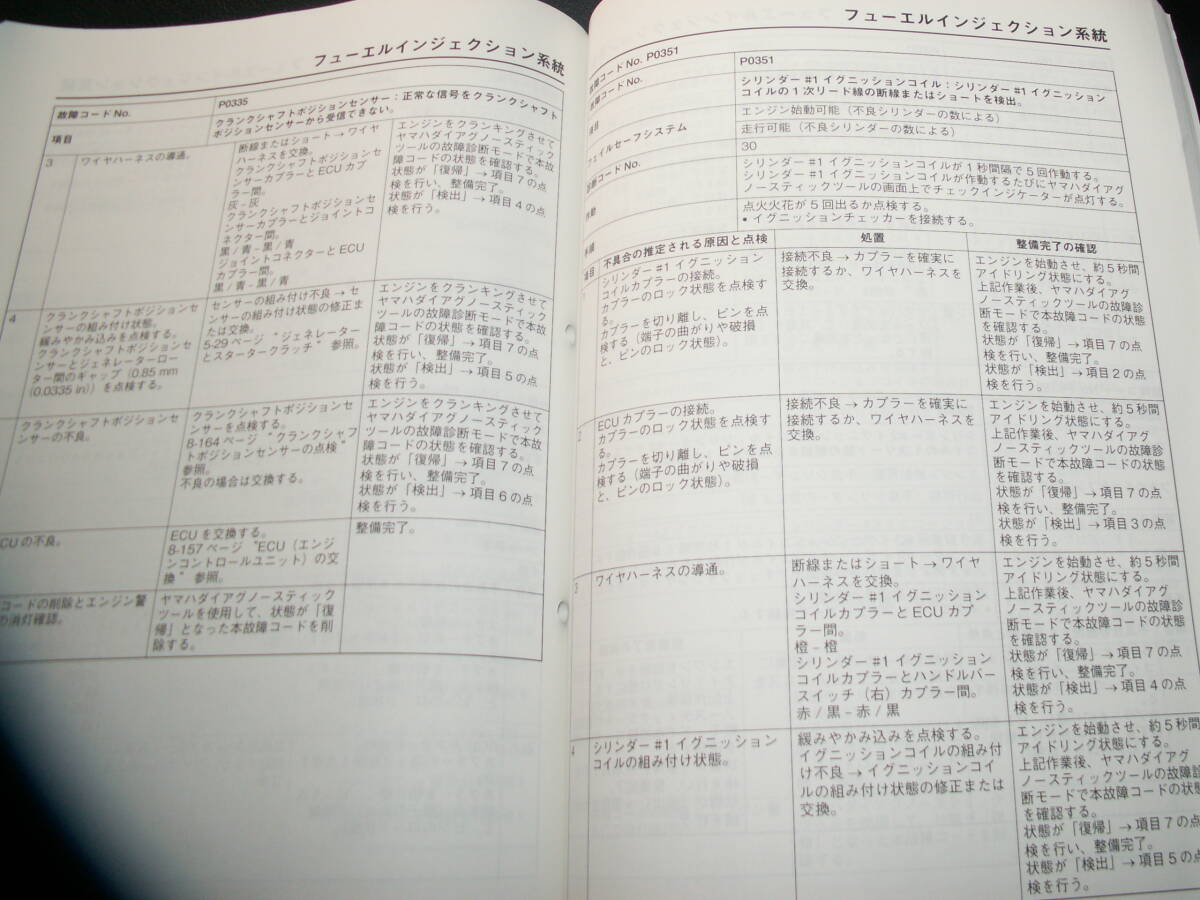 フューエルインジェクション系統
故障コード No.
P0335
項目
クランクシャフトポジションセンサー:正常な信号をクランクシャフト
ポジションセンサーから受信できない。
3
ワイヤハーネスの導通。
断線またはショート → ワイヤ
ハーネスを交換。
クランクシャフトポジションセ
ンサーカプラーと ECU カプ
ラー間。
灰 – 灰
クランクシャフトポジションセ
ンサーカプラーとジョイントコ
ネクター間。
黒 / 青 – 黒 / 青
ジョイントコネクターと ECU
カプラー間。
黒 / 青 – 黒 / 青
エンジンをクランキングさせて
ヤマハダイアグノースティック
ツールの故障診断モードで本故
障コードの状態を確認する。
状態が「復帰」→ 項目 7 の点
検を行い、整備完了。
状態が「検出」→ 項目 4 の点
検を行う。
4
クランクシャフトポジションセ
ンサーの組み付け状態。
緩みやかみ込みを点検する。
クランクシャフトポジションセ
ンサーとジェネレーターロー
ター間のギャップ(0.85 mm
(0.0335 in))を点検する。
センサーの組み付け不良 → セ
ンサーの組み付け状態の修正ま
たは交換。
5-29 ページ “ジェネレーター
とスタータークラッチ” 参照。
エンジンをクランキングさせて
ヤマハダイアグノースティック
ツールの故障診断モードで本故
障コードの状態を確認する。
状態が「復帰」→ 項目 7 の点
検を行い、整備完了。
状態が「検出」→ 項目 5 の点
検を行う。
クランクシャフトポジションセ
ンサーの不良。
クランクシャフトポジションセ
ンサーを点検する。
8-164 ページ “クランクシャフ
トポジションセンサーの点検”
参照。
不良の場合は交換する。
エンジンをクランキングさせて
ヤマハダイアグノースティック
ツールの故障診断モードで本故
障コードの状態を確認する。
状態が「復帰」→ 項目 7 の点
検を行い、整備完了。
状態が「検出」→ 項目 6 の点
検を行う。
CU の不良。
ECU を交換する。
8-157 ページ “ECU(エンジ
ンコントロールユニット)の交
換” 参照。
整備完了。
コードの削除とエンジン警
の消灯確認。
ヤマハダイアグノースティック
ツールを使用して、状態が「復
帰」となった本故障コードを削
除する。
フューエルインジェクション系統
故障コード No. P0351
故障コード No.
P0351
項目
シリンダー #1 イグニッションコイル:シリンダー #1 イグニッション
コイルの 1 次リード線の断線またはショートを検出。
フェイルセーフシステム
エンジン始動可能(不良シリンダーの数による)
走行可能(不良シリンダーの数による)
診断コード No.
30
作動
シリンダー #1 イグニッションコイルが 1 秒間隔で 5 回作動する。
シリンダー #1 イグニッションコイルが作動するたびにヤマハダイアグ
ノースティックツールの画面上でチェックインジケーターが点灯する。
点火火花が 5 回出るか点検する。
• イグニッションチェッカーを接続する。
項目
不具合の推定される原因と点検
処置
整備完了の確認
シリンダー #1 イグニッション
コイルカプラーの接続。
カプラーのロック状態を点検す
る。
カプラーを切り離し、ピンを点
検する(端子の曲がりや破損
と、ピンのロック状態)。
接続不良 → カプラーを確実に
接続するか、ワイヤハーネスを
交換。
エンジンを始動させ、約 5 秒間
アイドリング状態にする。
上記作業後、ヤマハダイアグ
ノースティックツールの故障診
断モードで本故障コードの状態
を確認する。
状態が「復帰」→ 項目 7 の点
検を行い、整備完了。
状態が「検出」→ 項目 2 の点
検を行う。
2
ECU カプラーの接続。
カプラーのロック状態を点検す
る。
カプラーを切り離し、ピンを点
検する(端子の曲がりや破損
と、ピンのロック状態)。
接続不良 → カプラーを確実に
接続するか、ワイヤハーネスを
交換。
エンジンを始動させ、約 5 秒間
アイドリング状態にする。
上記作業後、ヤマハダイアグ
ノースティックツールの故障診
断モードで本故障コードの状態
を確認する。
状態が「復帰」→ 項目 7 の点
検を行い、整備完了。
状態が「検出」→ 項目 3 の点
検を行う。
3
ワイヤハーネスの導通。
断線またはショート → ワイヤ
ハーネスを交換。
シリンダー #1 イグニッション
コイルカプラーと ECU カプ
ラー間。
橙 – 橙
シリンダー #1 イグニッション
コイルカプラーとハンドルバー
スイッチ(右)カプラー間。
赤 / 黒 – 赤 / 黒
エンジンを始動させ、約 5 秒間
アイドリング状態にする。
上記作業後、ヤマハダイアグ
ノースティックツールの故障診
断モードで本故障コードの状態
を確認する。
状態が「復帰」→ 項目 7 の点
検を行い、整備完了。
状態が「検出」→ 項目 4 の点
検を行う。
4
シリンダー #1 イグニッション
コイルの組み付け状態。
緩みやかみ込みを点検する。
イグニッションコイルの組み付
け不良 → イグニッションコイ
ルの組み付け状態の修正または
交換。
エンジンを始動させ、約 5 秒間
アイドリング状態にする。
上記作業後、ヤマハダイアグ
ノースティックツールの故障診
断モードで本故障コードの状態
を確認する。
状態が「復帰」→ 項目 7 の点
検を行い、整備完了。
状態が「検出」→ 項目 5 の点
検を行う。